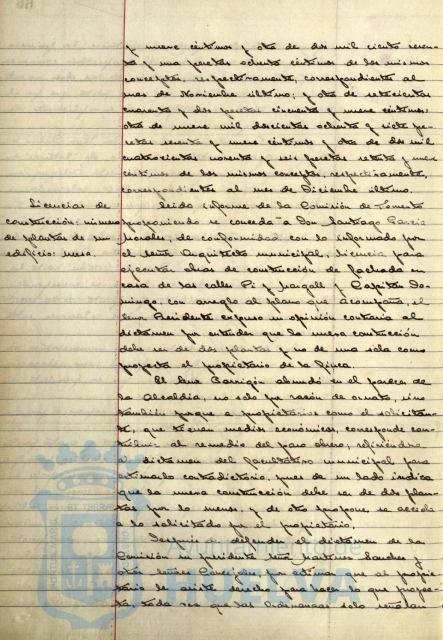 y nueve céntimos y otra de dos mil ciento seten-
ta y una pesetas ochenta céntimos de los mismos
conceptos, respectivamente, correspondientes al
mes de Noviembre último; y otra de setecientas
cuarenta y dos pesetas cincuenta y nueve céntimos,
otra de nueve mil doscientas ochenta y siete pe-
setas setenta y nueve céntimos y otra de dos mil
cuatrocientas noventa y seis pesetas setenta y nueve
céntimos de los mismos conceptos, respectivamente,
correspondientes al mes de Diciembre último.
Licencias de
construcción: número
de plantas de un
edificio:
Leido informe de la Comisión de Fomento
proponiendo se conceda a Don Santiago García
Morales, de conformidad con lo informado por
el señor Arquitecto municipal, licencia para
ejecutar obras de construcción de fachada en
casa de las calles Pi y Margall y Capitán Do-
mingo, con arreglo al plano que acompaña, el
señor Presidente expuso su opinión contraria al
dictamen por entender que la nueva construcción
debe ser de dos plantas y no de una sola como
proyecta el propietario de la finca.
El señor Garrigón abundó en el parecer de
la Alcaldía, no solo por razón de ornato, sino
también porque a propietarios como el solicitan-
te, que tienen medios económicos, corresponde con-
tribuir al remedio del paro obrero; refiriéndose
al dictamen del facultativo municipal para
estimarlo contradictorio, pues de un lado indica
que la nueva construcción debe ser de dos plan-
tas por lo menos, y de otro propone se acceda
a lo solicitado por el propietario.
Después de defender el dictamen de la
Comisión su presidente señor Martínez Sánchez y
otros señores Concejales, por estimar que al propie-
tario le asiste derecho para hacer lo que proyec-
ta, toda vez que las Ordenanzas solo señalan